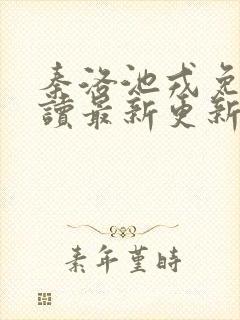 秦洛池戎免
讀最新更新
素年堇時